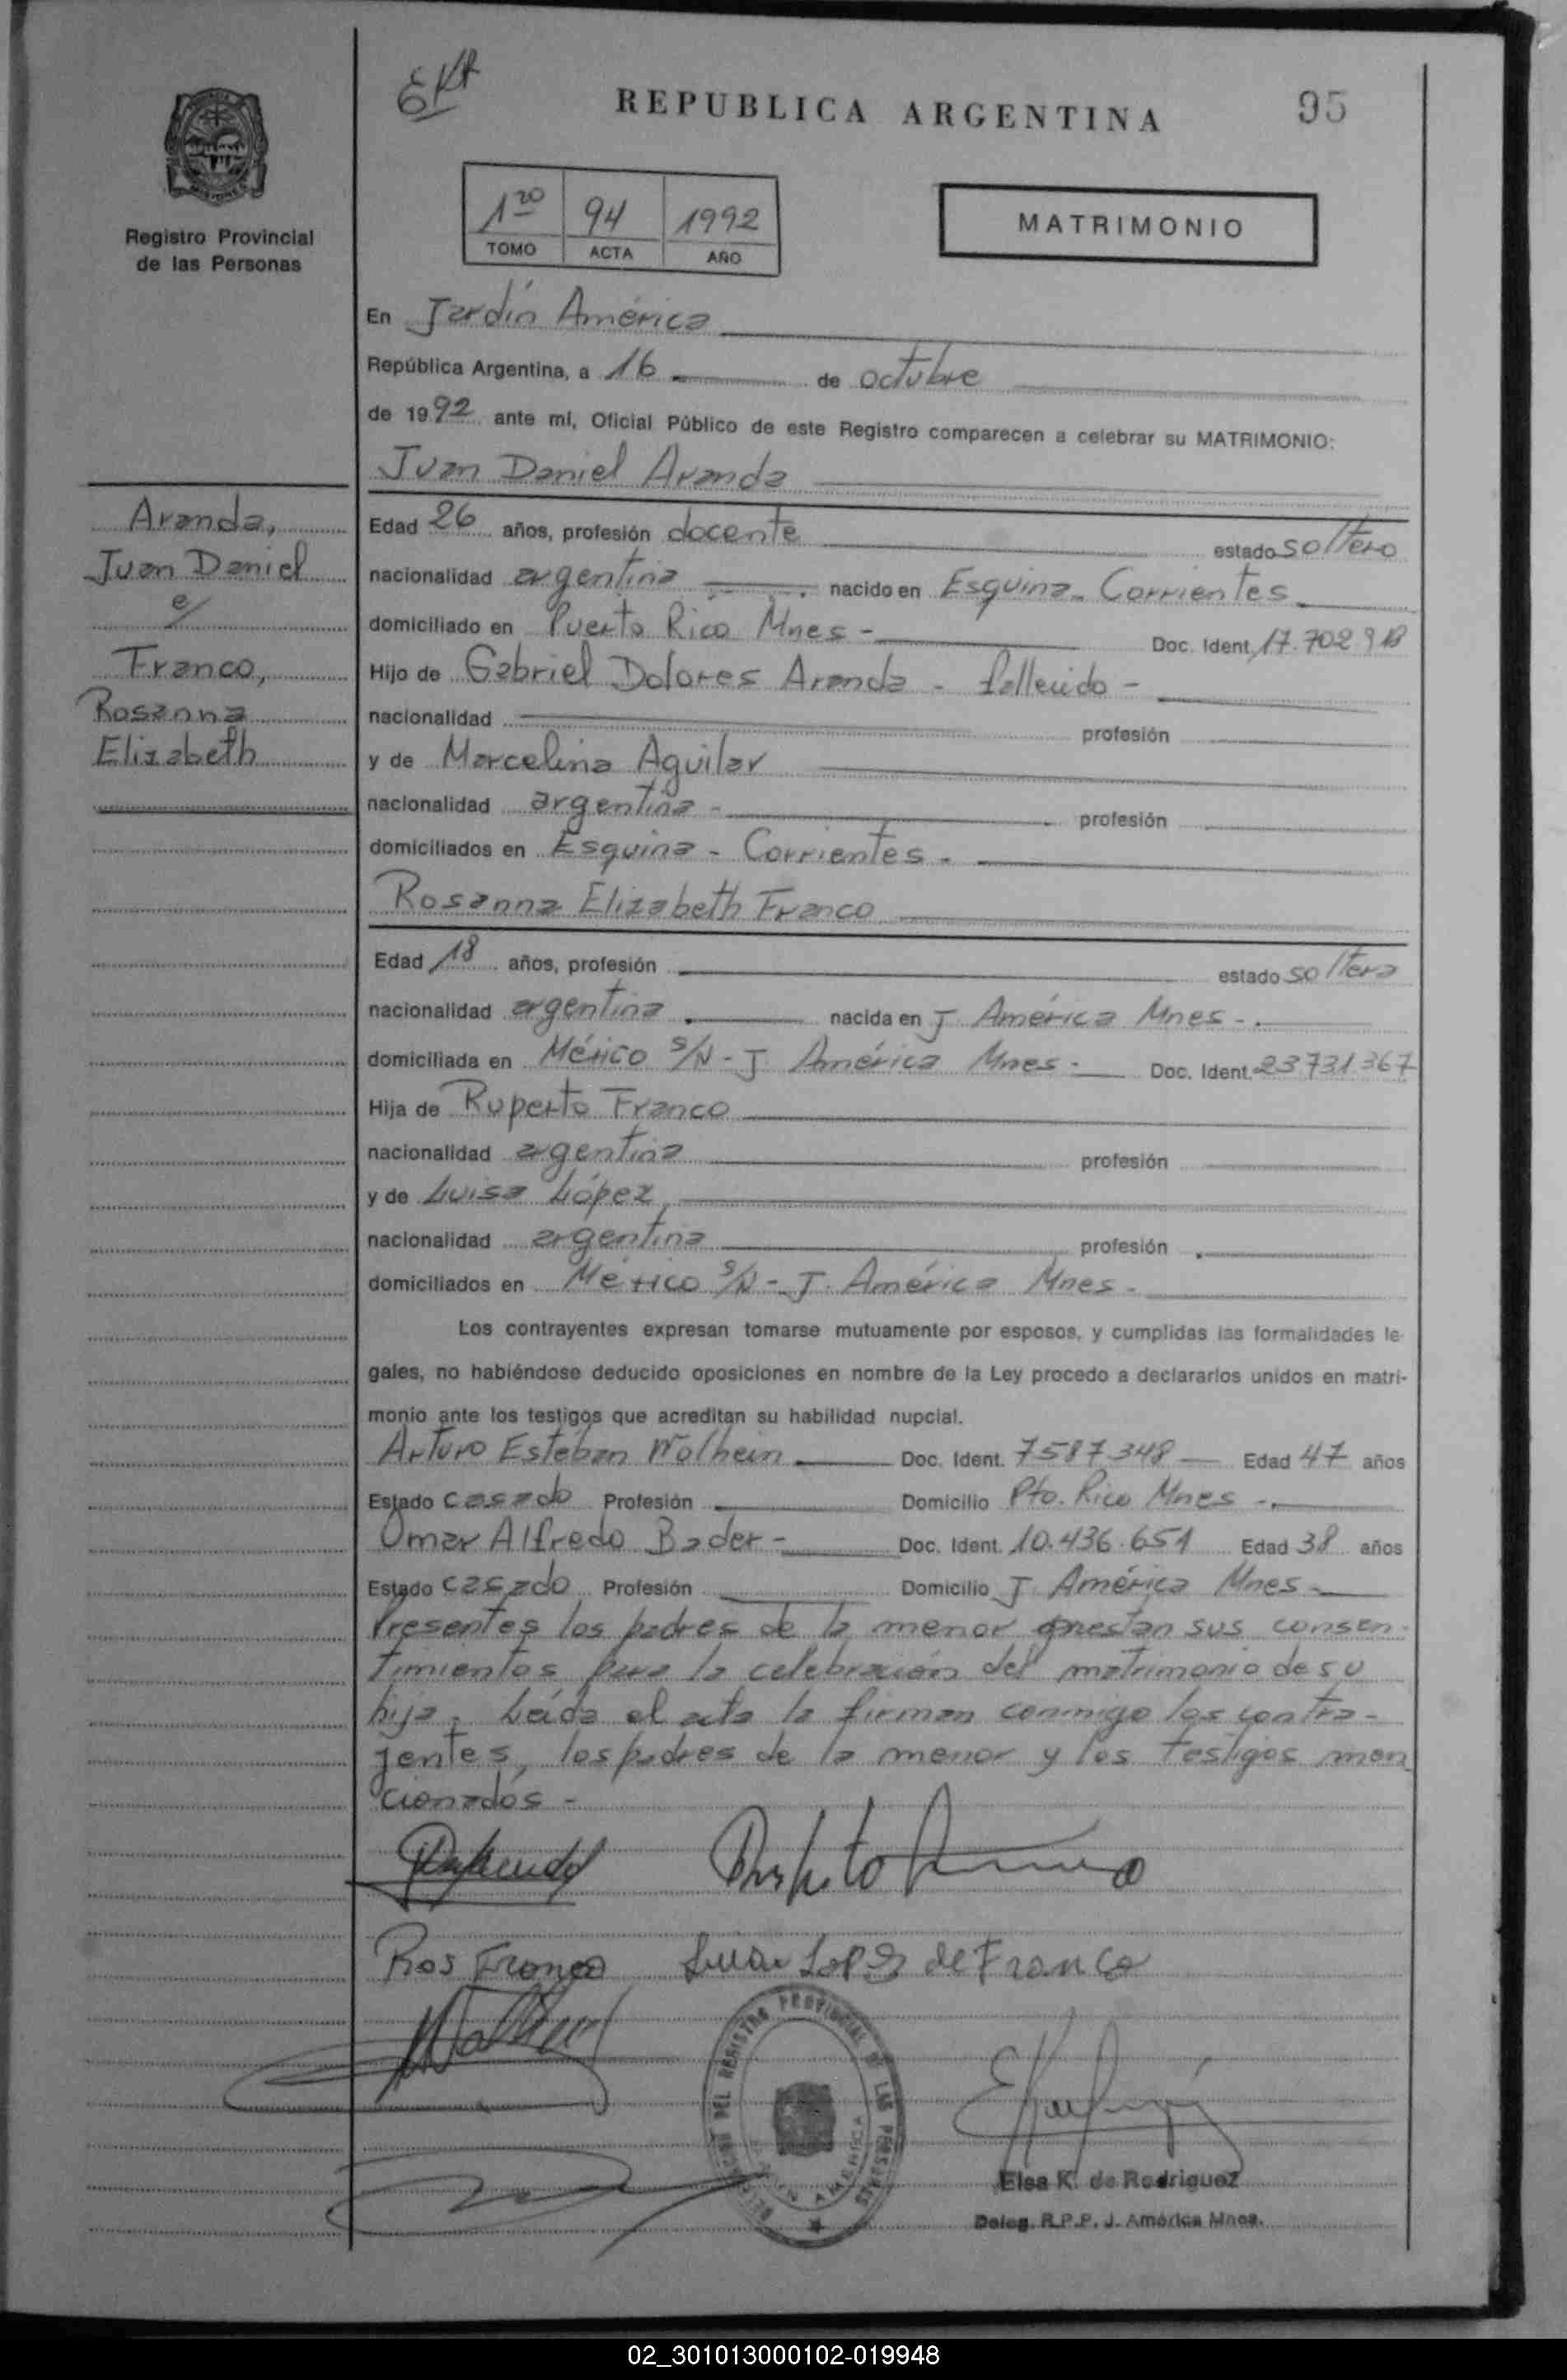 EKR
REPUBLICA ARGENTINA
95
Registro Provincial
de las Personas
1ro 94 1992
TOMO ACTA AÑO
MATRIMONIO
En Jardín América
República Argentina, a 16 de octubre
de 1992 ante mí, Oficial Público de este Registro comparecen a celebrar su MATRIMONIO:
Juan Daniel Aranda
Aranda,
Juan Daniel
c/
Franco,
Rosanna
Elizabeth
Edad 26 años, profesión docente estado soltero
nacionalidad argentina nacido en Esquina - Corrientes
domiciliado en Puerto Rico Mnes - Doc. Ident. 17.702.9
Hijo de Gabriel Dolores Aranda - fallecido -
nacionalidad profesión
y de Marcelina Aguilar
nacionalidad argentina - profesión
domiciliados en Esquina - Corrientes -
Rosanna Elizabeth Franco
Edad 18 años, profesión estado soltera
nacionalidad argentina nacida en J. América Mnes -
domiciliada en México s/N - J. América Mnes - Doc. Ident. 23731.367
Hija de Ruperto Franco
nacionalidad argentina profesión
y de Luisa López
nacionalidad argentina profesión
domiciliados en México s/N - J. América Mnes -
Los contrayentes expresan tomarse mutuamente por esposos, y cumplidas las formalidades le-
gales, no habiéndose deducido oposiciones en nombre de la Ley procedo a declararlos unidos en matri-
monio ante los testigos que acreditan su habilidad nupcial.
Arturo Esteban Wolhein Doc. Ident. 7587348 Edad 47 años
Estado casado Profesión Domicilio Pto. Rico Mnes -
Omar Alfredo Bader - Doc. Ident. 10.436.651 Edad 38 años
Estado casado Profesión Domicilio J. América Mnes -
Presentes los padres de la menor prestan sus consen-
timientos para la celebración del matrimonio de su
hija. Leída el acta la firman conmigo los contra-
yentes, los padres de la menor y los testigos men
cionados -
Ros Franco Luisa Lopes de Franco
DELEGACION DEL REGISTRO PROVINCIAL DE LAS PERSONAS
JARDIN AMERICA
Elsa K. de Rodriguez
Deleg. R.P.P. J. América Mnes.
02_301013000102-019948